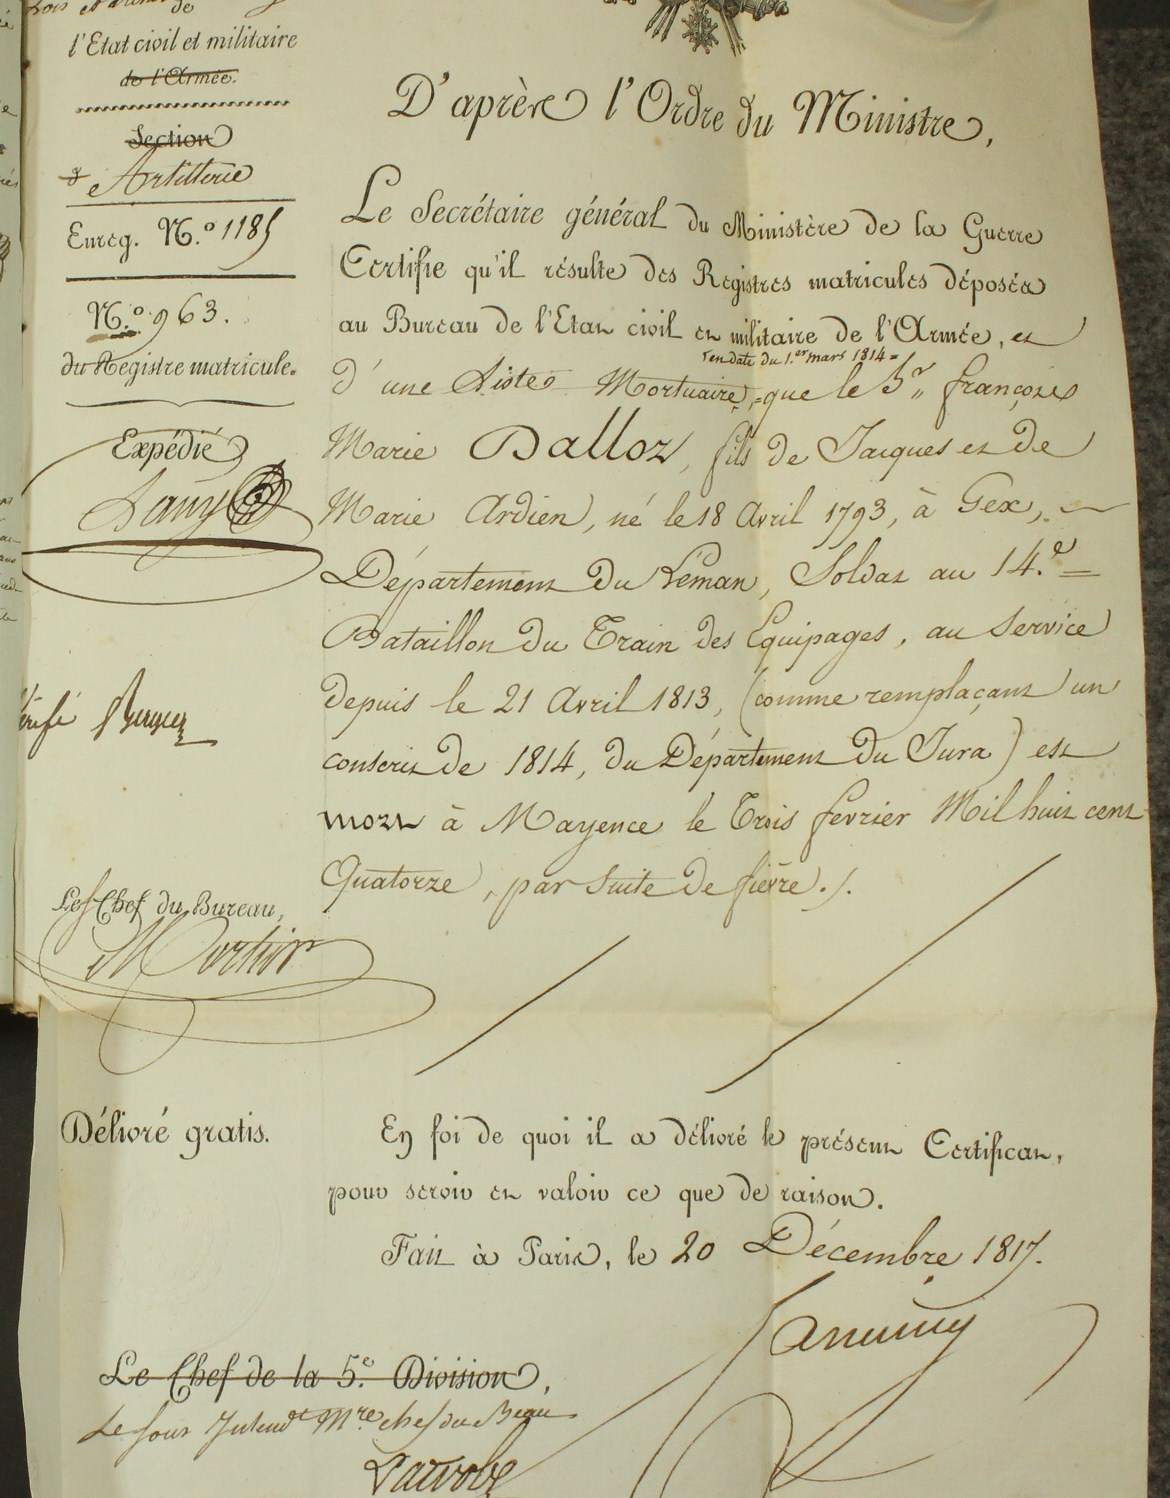 de
l'Etat civil et militaire
de l'Armée.
Section
d'Artillerie
Enreg. N.º 1185
N.º 963.
du Registre matricule.
Expédié
Vérifié
Le S/Chef du Bureau,
Délivré gratis.
D'après l'Ordre du Ministre,
Le Secrétaire général du Ministère de la Guerre
Certifie qu'il résulte des Registres matricules déposés
au Bureau de l'Etat civil et militaire de l'Armée, et
en date du 1.er mars 1814 =
d'une Liste Mortuaire, que le S.r françois
Marie Dalloz, fils de Jacques et de
Marie Ardien, né le 18 Avril 1793, à Gex,
Département du Léman, Soldat au 14.e
Bataillon du Train des Equipages, au Service
depuis le 21 Avril 1813, (comme remplaçant un
conscrit de 1814, du Département du Jura) est
mort à Mayence le Trois février Mil huit cent
Quatorze, par Suite de fièvre ./.
En foi de quoi il a délivré le présent Certificat,
pour servir et valoir ce que de raison.
Fait à Paris, le 20 Décembre 1817.
Le Chef de la 5.e Division,
Le Sous Intend.t M.re chef du Beau